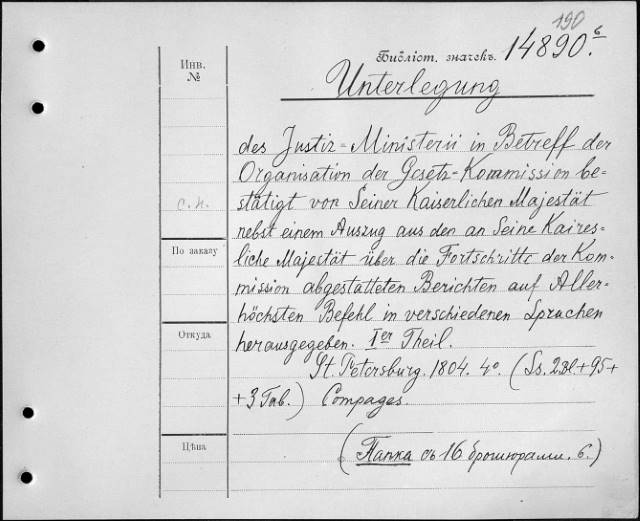 190
Библіот. значекъ. 14890.б
Инв.
№
Unterlegung
des Justiz=Ministerii in Betreff der
Organisation der Gesetz-Kommission be=
stätigt von Seiner Kaiserlichen Majestät
с.н.
nebst einem Auszug aus den an Seine Kaires=
По заказу
liche Majestät über die Fortschritte der Kom=
mission abgestatteten Berichten auf Aller=
höchsten Befehl in verschiedenen Sprachen
Откуда
herausgegeben. Ier Theil.
St. Petersburg. 1804. 4o. (Ss. 2Bl.+95+
+3 Tab.) Compages.
Цѣна
(Папка съ 16 брошюрами. б.)